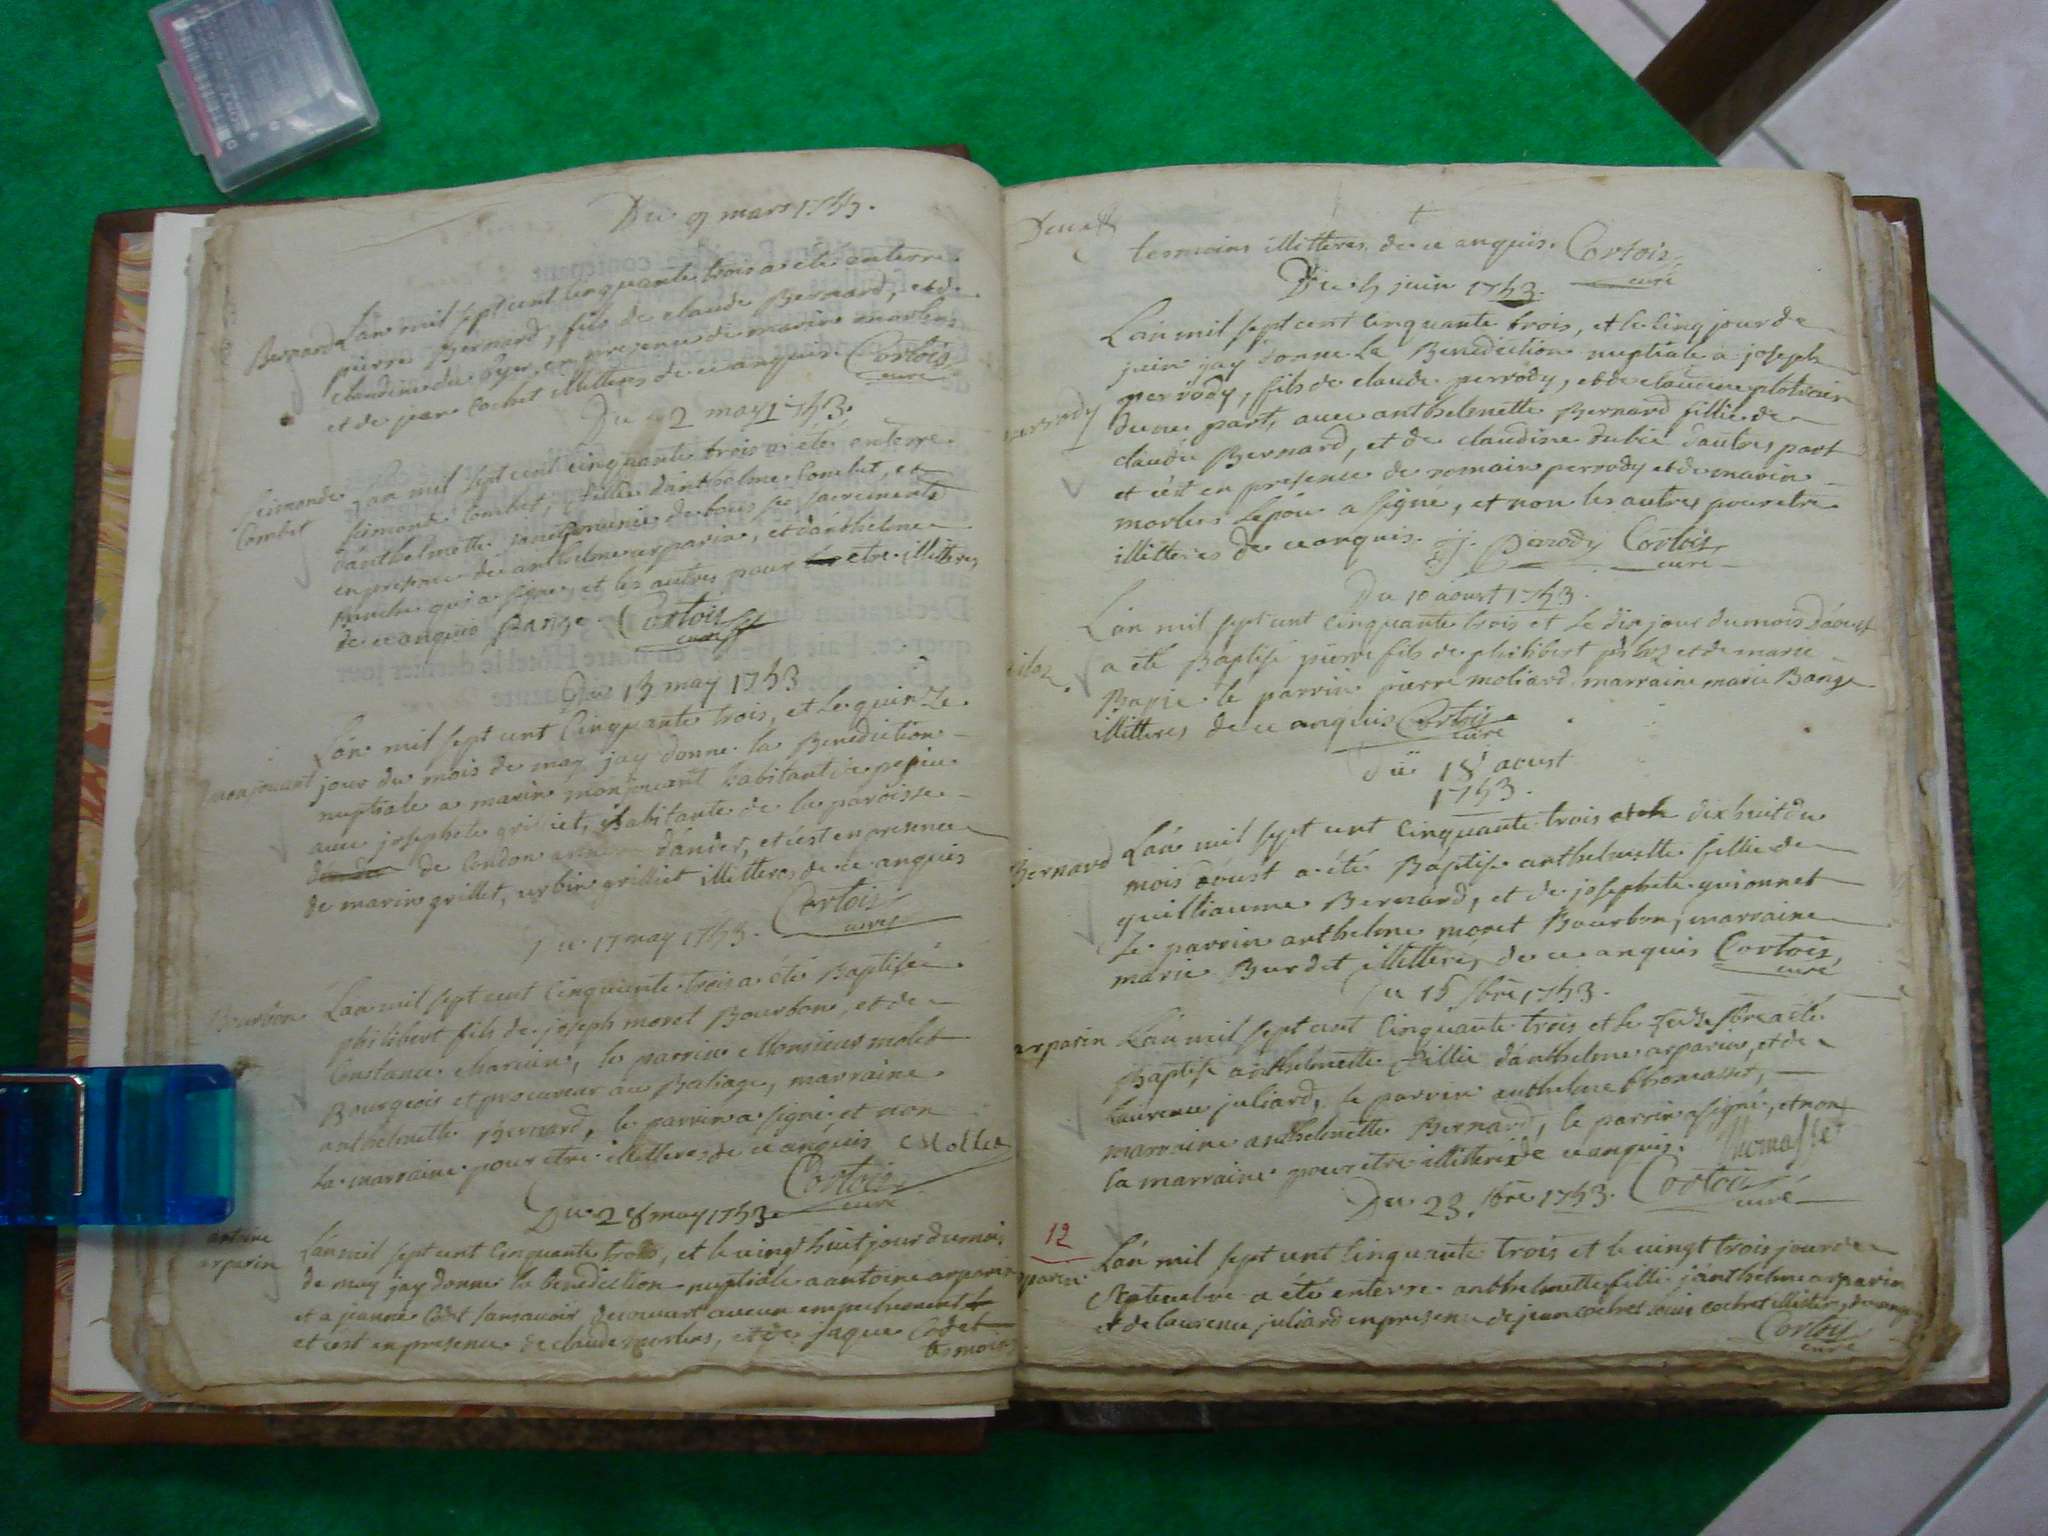 Du 9 mars 1753.
Bernard
Lan mil sept cent cinquante trois a eté enterre
pierre Bernard, fils de claude Bernard, et de
claudine du Byer, en presence de marin morlus
et de jean Cochet illitteres de ce anquis. Cortois
curé
Du 2 may 1753.
Seimonde
Combet
Lan mil sept cent cinquante trois a été enterre
seimonde Combet, fillie danthelme Combet, et
danthelmette munie de tous ses sacrements
en presence de anthelme arparin, et danthelme
qui a signe, et les autres pour etre illitteres
de ce anquis Barge Cortois
curé
Du 15 may 1753
monjouant
Lan mil sept cent cinquante trois, et le quinze
jour du mois de may jay donne la Benediction
nuptiale a marin monjouant habitant de pepieu
avec josephete grilliet, habitante de la paroisse
de Condon dander, et cest en presence
de marin grillet, urbin grilliet illitteres de ce anquis
Cortois
curé
Du 17 may 1753.
Bourbon
Lan mil sept cent cinquante trois a été Baptisée
philibert fils de joseph moret Bourbon, et de
Constance charcun, le parrin Monsieur molet
Bourgeois et procureur au Baliage, marraine
anthelmette Bernard, le parrin a signé et non
la marraine pour etre illitteres de ce anquis Mollet
Cortois
curé
Du 28 may 1753
antoine
arparin
Lan mil sept cent cinquante trois, et le vingt huit jour du mois
de may jay donne la benediction nuptiale a antoine arparin
et a jeanne Codet sans avoir decouvert aucun empechement
et cest en presence de claude morlus, et de jaque Codet
tesmoins
tesmoins illitteres de ce anquis. Cortois
curé
Du 5 juin 1753.
perrody
Lan mil sept cent cinquante trois, et le cinq jour de
juin jay donne la Benediction nuptiale a joseph
perrody, fils de claude perrody, et de claudine
dune part, avec anthelmette Bernard fillie de
claude Bernard, et de claudine dubié dautres part
et cest en presence de romain perrody et de marin
morlus lepou a signe, et non les autres pour etre
illitteres de ce anquis. j. Perrody Cortois
curé
Du 10 aoust 1753.
Lan mil sept cent cinquante trois et le dix jour du mois daoust
a eté Baptise pierre fils de philibert piloz et de marie
Bapie le parrin pierre moliard marraine marie Bange
illitteres de ce anquis Cortois
curé
Du 18 aoust
1753.
Bernard
Lan mil sept cent cinquante trois dixhuit du
mois doust a été Baptise anthelmette fillie de
guilliaume Bernard, et de josephete guionnet
Le parrin anthelme moret Bourbon, marraine
marie Burdet illitteres de ce anquis Cortois
curé
Du 16 7bre 1753.
arparin
Lan mil sept cent cinquante trois et le 7bre a eté
Baptise anthelmette fillie danthelme arparin, et de
laurence juliard, le parrin anthelme thomasset,
marraine anthelmette Bernard, le parrin a signé, et non
la marraine pour etre illitteré de ce anquis. Thomasset
Cortois
curé
Du 23 7bre 1753.
12
arparin
Lan mil sept cent cinquante trois et le vingt trois jour de
Septembre a été enterre anthelmette fille danthelme arparin
et de laurence juliard en presence de jean cochet louis cochet illitteres de ce anquis
Cortois
curé